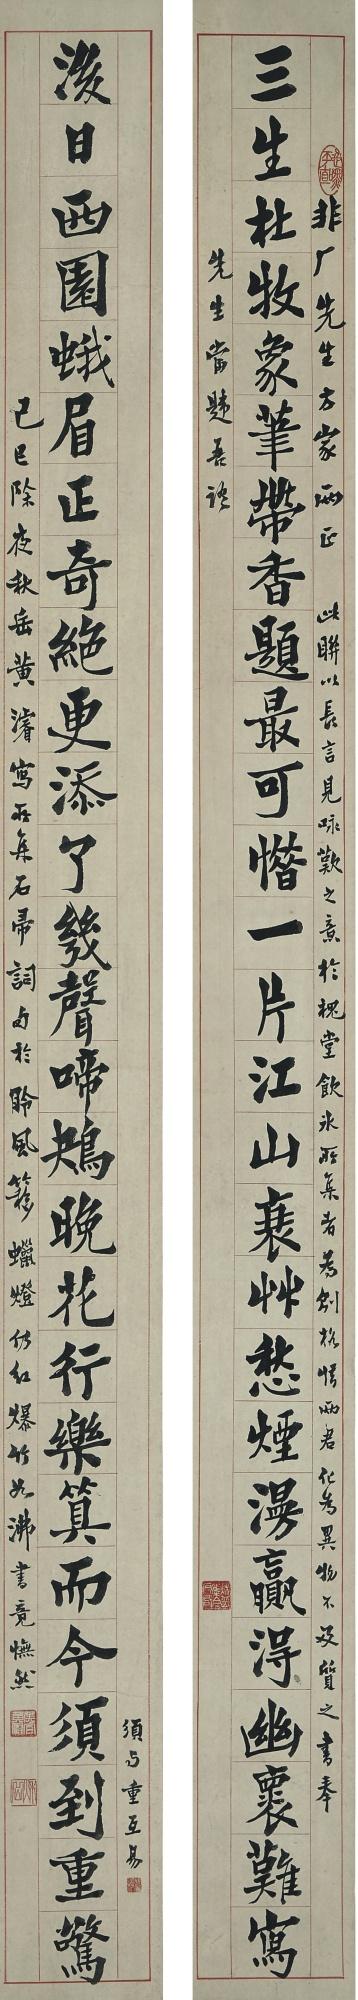 非厂先生方家两正 此联以長言見咏歎之意於槐堂飲冰所集者為創格惜兩君化為異物不及質之書奉
三生杜牧象筆帶香題最可惜一片江山衰艸愁煙漫贏淂幽褱難寫
先生當題吾語
淥日西園蛾眉正奇絶更添了幾聲啼鴂晚花行樂算而今須到重驚
須与重互易
己巳除夜秋岳黃濬寫所集石帚詞句於聆風簃蠟燈仿紅爆竹如沸書竟憮然